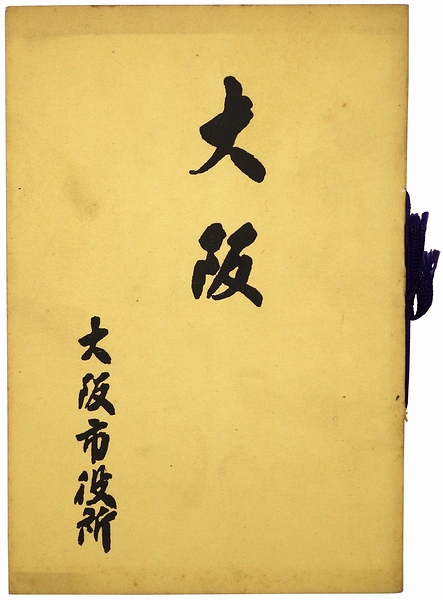 大阪
大阪市役所